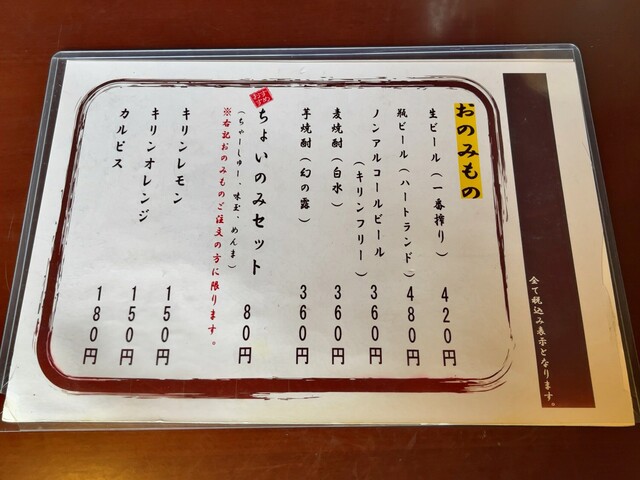 全て税込み表示となります。
おのみもの
生ビール(一番搾り) 420円
瓶ビール(ハートランド) 480円
ノンアルコールビール 360円
(キリンフリー)
麦焼酎(白水) 360円
芋焼酎(幻の露) 360円
おすすめ
ちょいのみセット 80円
(ちゃーしゅー、味玉、めんま)
※右記おのみものご注文の方に限ります。
キリンレモン 150円
キリンオレンジ 150円
カルピス 180円